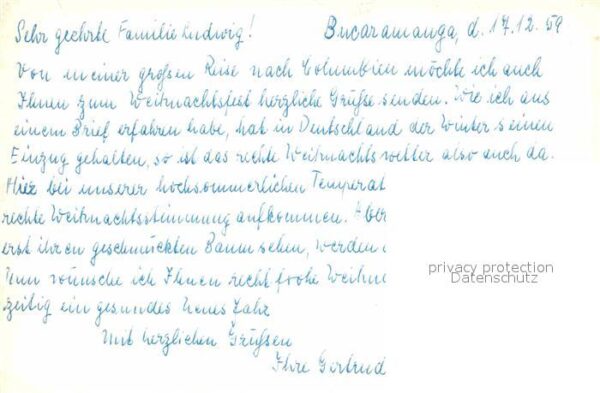 Sehr geehrte Familie Ludwig! Bucaramanga, d. 17.12.59
Von meiner großen Reise nach Columbien möchte ich auch
Ihnen zum Weihnachtsfest herzliche Grüße senden. Wie ich aus
einem Brief erfahren habe, hat in Deutschland der Winter seinen
Einzug gehalten, so ist das rechte Weihnachtswetter also auch da.
Hier bei unserer hochsommerlichen Temperat
rechte Weihnachtsstimmung aufkommen. Aber
erst ihren geschmückten Baum sehen, werden
Nun wünsche ich Ihnen recht frohe Weihne
zeitig ein gesundes neues Jahr
Mit herzlichen Grüßen
Ihre Gertrud
privacy protection
Datenschutz